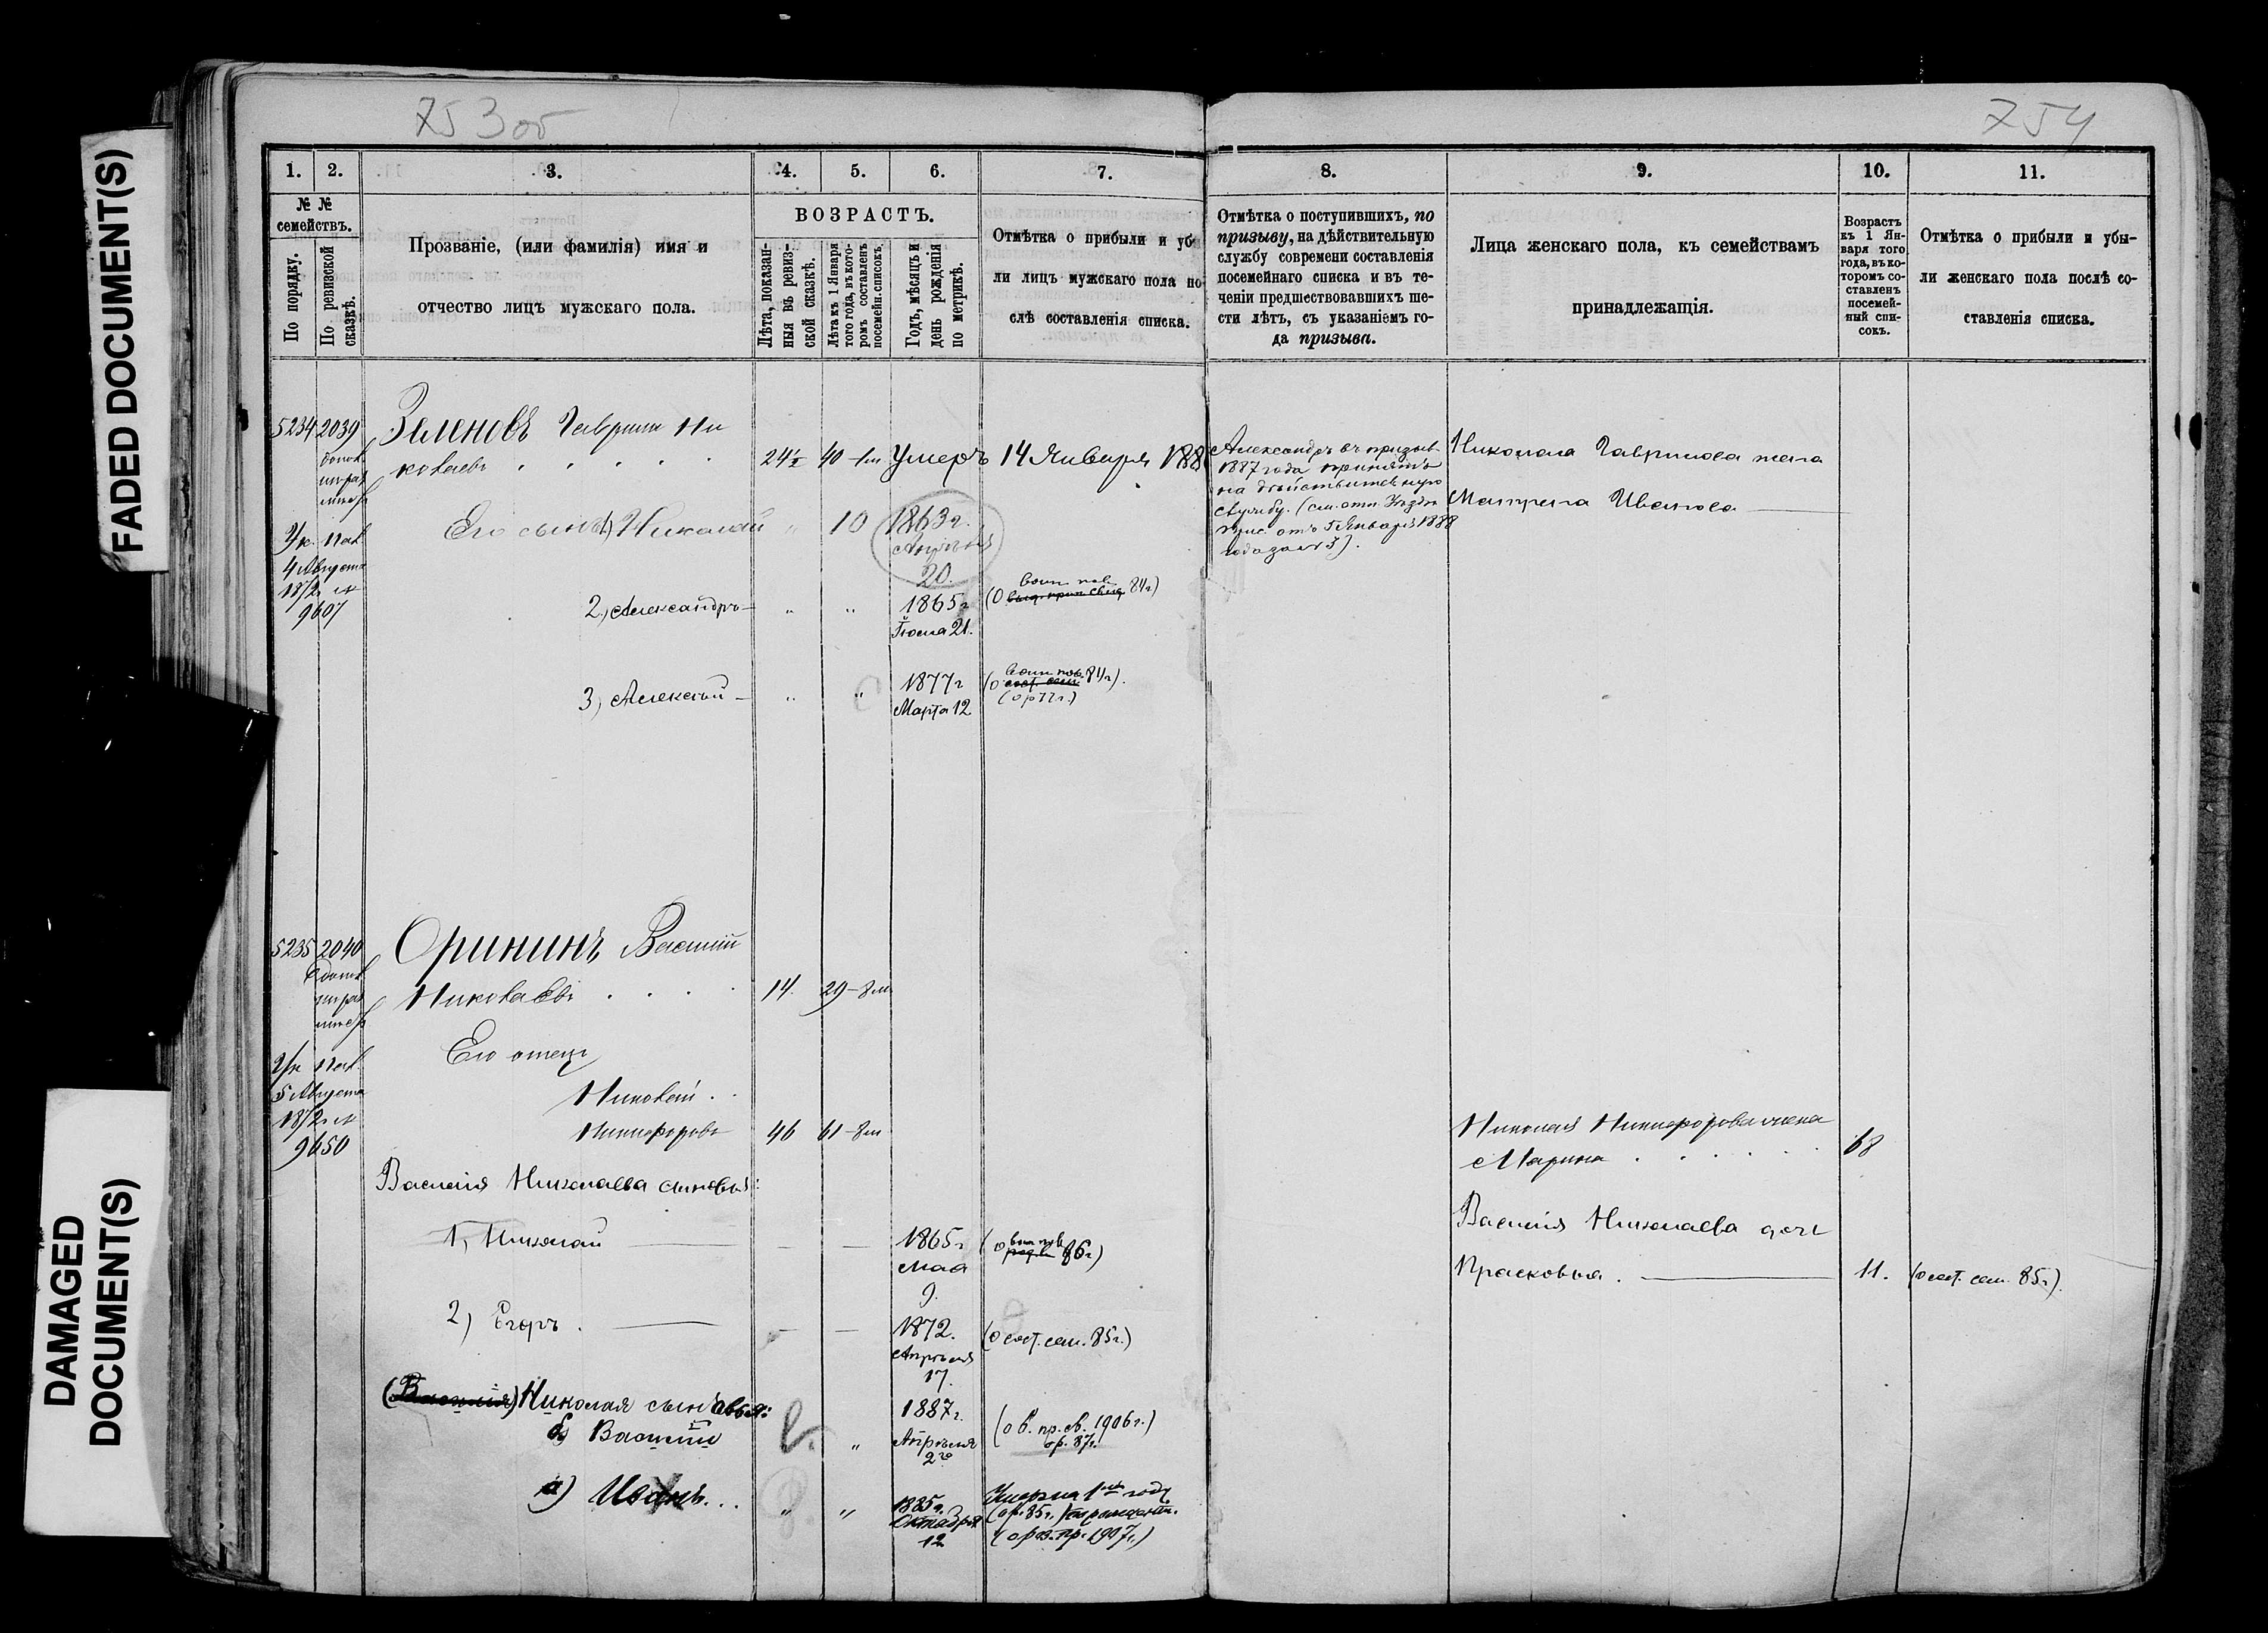 FADED DOCUMENT(S)
DAMAGED
DOCUMENT(S)
753 об
754
1.
2.
3.
4.
5.
6.
7.
8.
9.
10.
11.
№ №
семействъ.
По порядку.
По ревизской
сказкѣ.
Прозваніе, (или фамилія) имя и
отчество лицъ мужскаго пола.
ВОЗРАСТЪ.
Лѣта, показан-
ныя въ ревиз-
ской сказкѣ.
Лѣта къ 1 Января
того года, въ кото-
ромъ составленъ
посемейн. списокъ.
Годъ, мѣсяцъ и
день рожденія
по метрикѣ.
Отмѣтка о прибыли и убы-
ли лицъ мужскаго пола по-
слѣ составленія списка.
Отмѣтка о поступившихъ, по
призыву, на дѣйствительную
службу современи составленія
посемейнаго списка и въ те-
ченіи предшествовавшихъ ше-
сти лѣтъ, съ указаніемъ го-
да призыва.
Лица женскаго пола, къ семействамъ
принадлежащія.
Возрастъ
къ 1 Ян-
варя того
года, въ ко-
торомъ со-
ставленъ
посемей-
ный спи-
сокъ.
Отмѣтка о прибыли и убы-
ли женскаго пола послѣ со-
ставленія списка.
5234 2039 Зеленовъ Гаврила Ни
колаевъ 24½ 40 Умеръ 14 Января 188
4 Августа
1872 №
9607
Его сынъ 1) Николай " 10 1863 г.
Апрѣля
20.
2) Александръ — " " 1865 г.
Іюля 21.
(о воин. пов. 84 г)
3) Алексѣй — " " 1877 г
Марта 12
(о воин. пов. 84 г).
(о р 77 г.)
Александръ въ призыв
1887 года принятъ
на дѣйствительную
службу. (см. отн. Уѣздн
Прис. отъ 5 Января 1888
года за № 3).
Николая Гаврилова жена
Матрена Иванова
5235 2040 Орининъ Василій
Николаевъ 14. 29 - 8 м
5 Августа
1872 №
9650
Его отецъ
Николай
Никифоровъ 46 61 - 8 м
Василія Николаева сыновья:
1) Николай — — 1865 г.
Мая
9.
(о воин. пов. 86 г)
2) Егоръ — — 1872.
Апрѣля
17.
(о сост. сем. 85 г.)
(Василія) Николая сыновья:
б) Василій " 1887 г.
Апрѣля
2го
(о в. пр. св. 1906 г.)
ор. 87 г.
а) Иванъ " " 1885 г.
Октября
12
(ор. 85 г.)
Николая Никифорова жена
Марина 68
Василія Николаева дочь
Прасковья. 11. (о сост. сем. 85 г.)